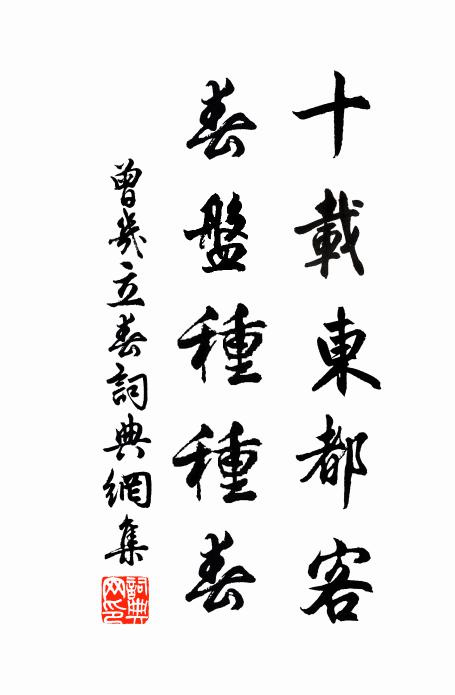 十載東都客
春盤種種春
曾幾立春詞典網集
詞典
网印